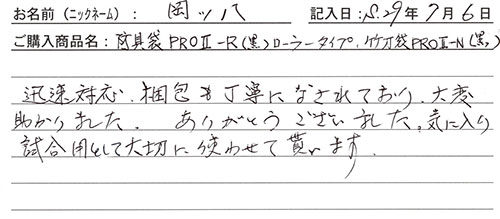 お名前(ニックネーム): 岡ッ八 記入日:S.29年7月6日
ご購入商品名: 防具袋PROⅡ-R(黒)ローラータイプ、竹刀袋PROⅡ-N(黒)
迅速対応、梱包も丁寧になされており、大変
助かりました。 ありがとうございました。気に入り
試合用として大切に使わせて貰います。